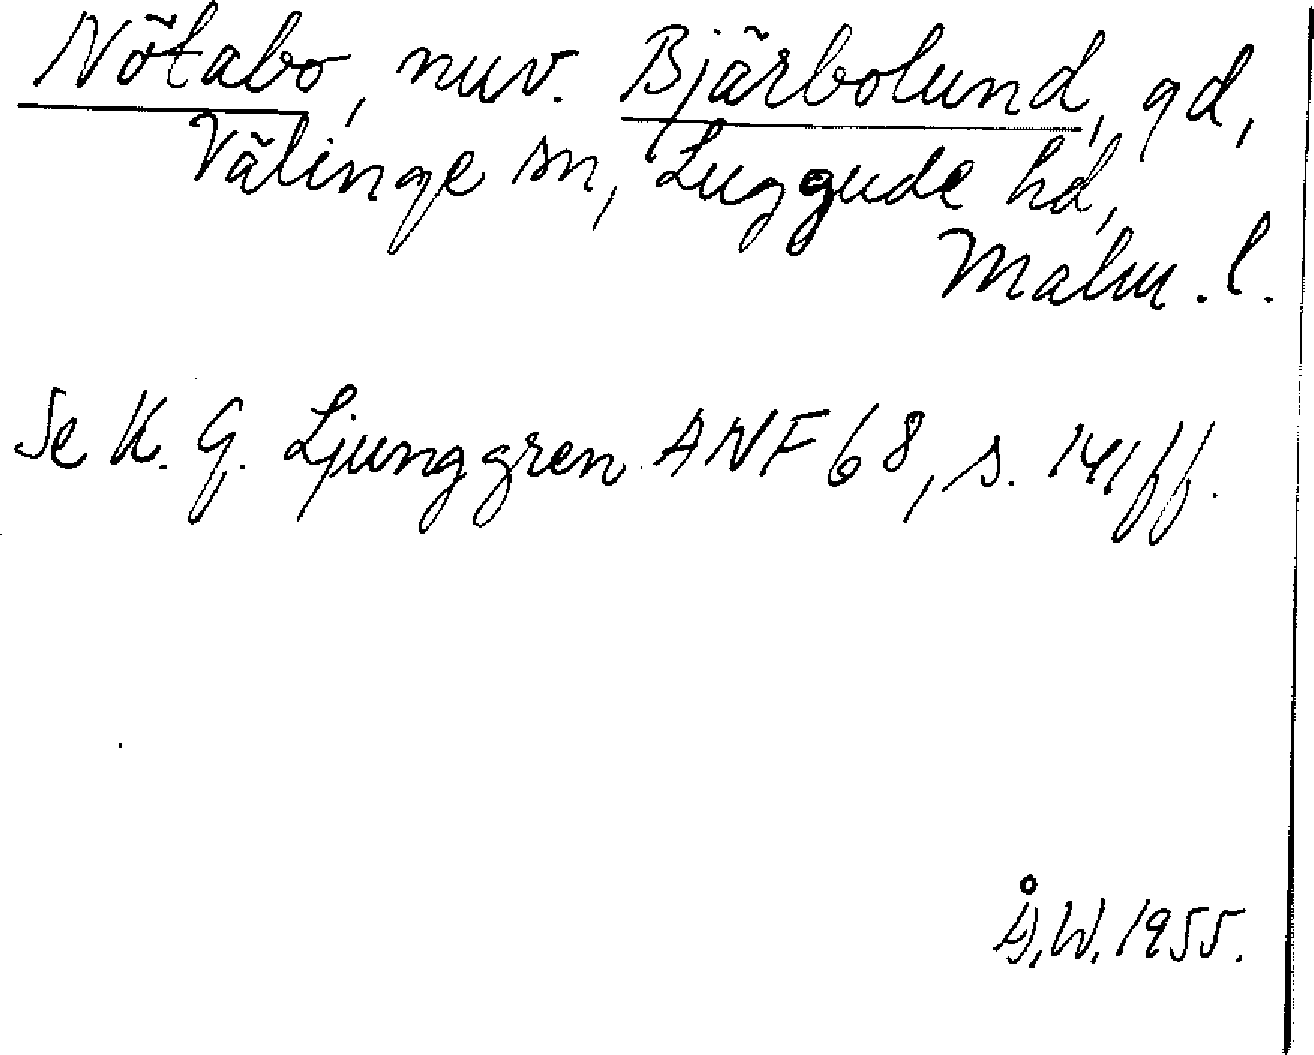 Nötabo, nuv. Bjärbolund, gd,
Välinge sn, Luggude hd,
Malm. l.
Se K. G. Ljunggren ANF 68, s. 141 ff.
Å.W. 1955.